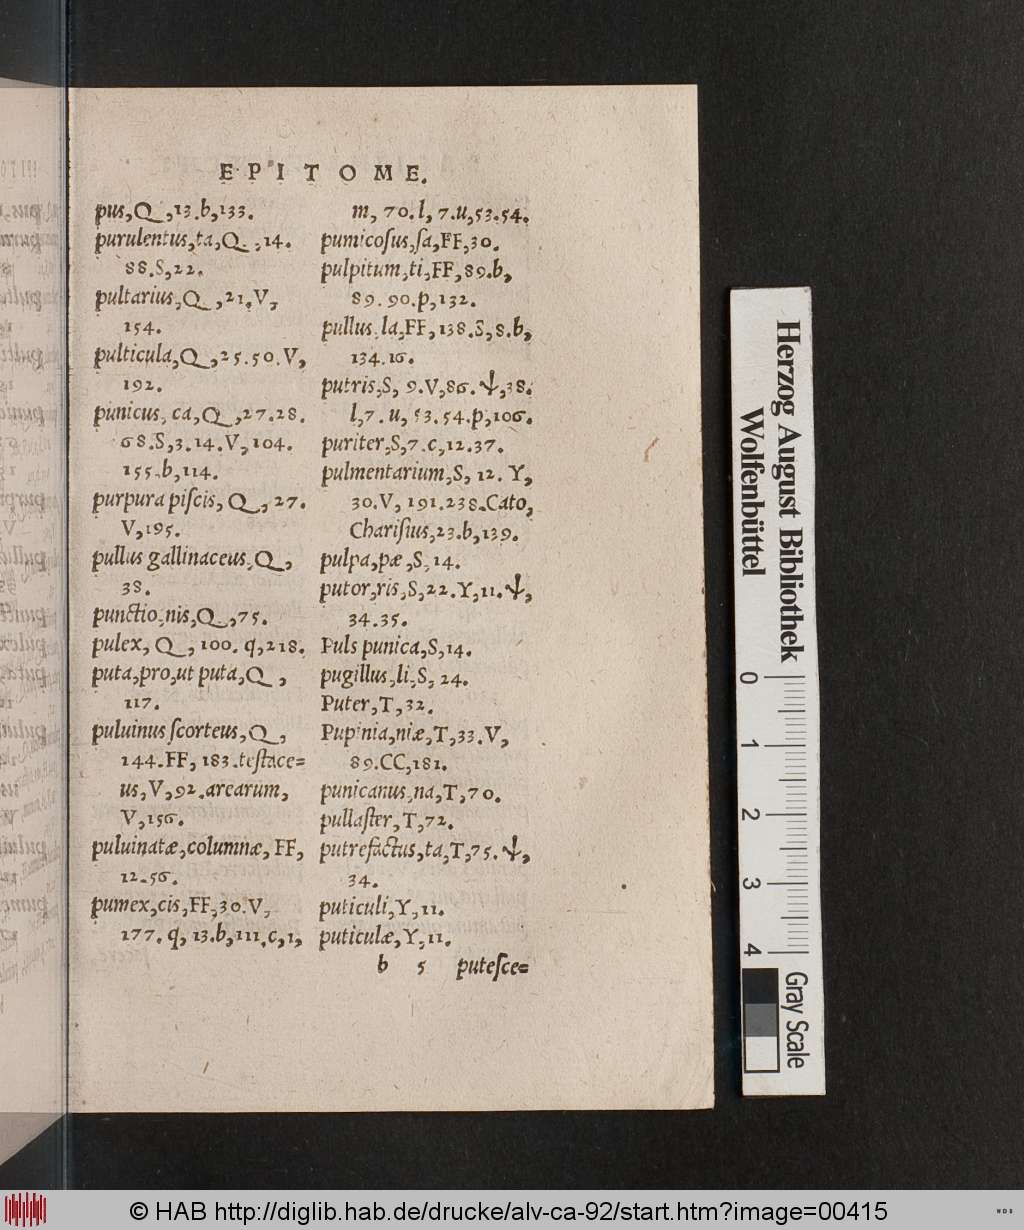 EPITOME.
pus, Q, 13. b, 133.
purulentus, ta, Q, 14.
88. S, 22.
pultarius, Q, 21. V,
154.
pulticula, Q, 25. 50. V,
192.
punicus, ca, Q, 27. 28.
68. S, 3. 14. V, 104.
155. b, 114.
purpura piſcis, Q, 27.
V, 195.
pullus gallinaceus, Q,
38.
punctio, nis, Q, 75.
pulex, Q, 100. q, 218.
puta, pro, ut puta, Q,
117.
puluinus ſcorteus, Q,
144. FF, 183. teſtace=
us, V, 92. arcarum,
V, 156.
puluinatæ, columnæ, FF,
12. 56.
pumex, cis, FF, 30. V,
177. q, 13. b, 111. c, 1,
m, 70. l, 7. u, 53. 54.
pumicoſus, ſa, FF, 30.
pulpitum, ti, FF, 89. b,
89. 90. p, 132.
pullus, la, FF, 138. S, 8. b,
134. 16.
putris, S, 9. V, 86. ↓, 38.
l, 7. u, 53. 54. p, 106.
puriter, S, 7. c, 12. 37.
pulmentarium, S, 12. Y,
30. V, 191. 238. Cato,
Chariſius, 23. b, 139.
pulpa, pæ, S, 14.
putor, ris, S, 22. Y, 11. ↓,
34. 35.
Puls punica, S, 14.
pugillus, li, S, 24.
Puter, T, 32.
Pupinia, niæ, T, 33. V,
89. CC, 181.
punicanus, na, T, 70.
pullaſter, T, 72.
putrefactus, ta, T, 75. ↓,
34.
puticuli, Y, 11.
puticulæ, Y, 11.
b 5 puteſce=
Herzog August Bibliothek
Wolfenbüttel
0 1 2 3 4
Gray Scale
© HAB http://diglib.hab.de/drucke/alv-ca-92/start.htm?image=00415